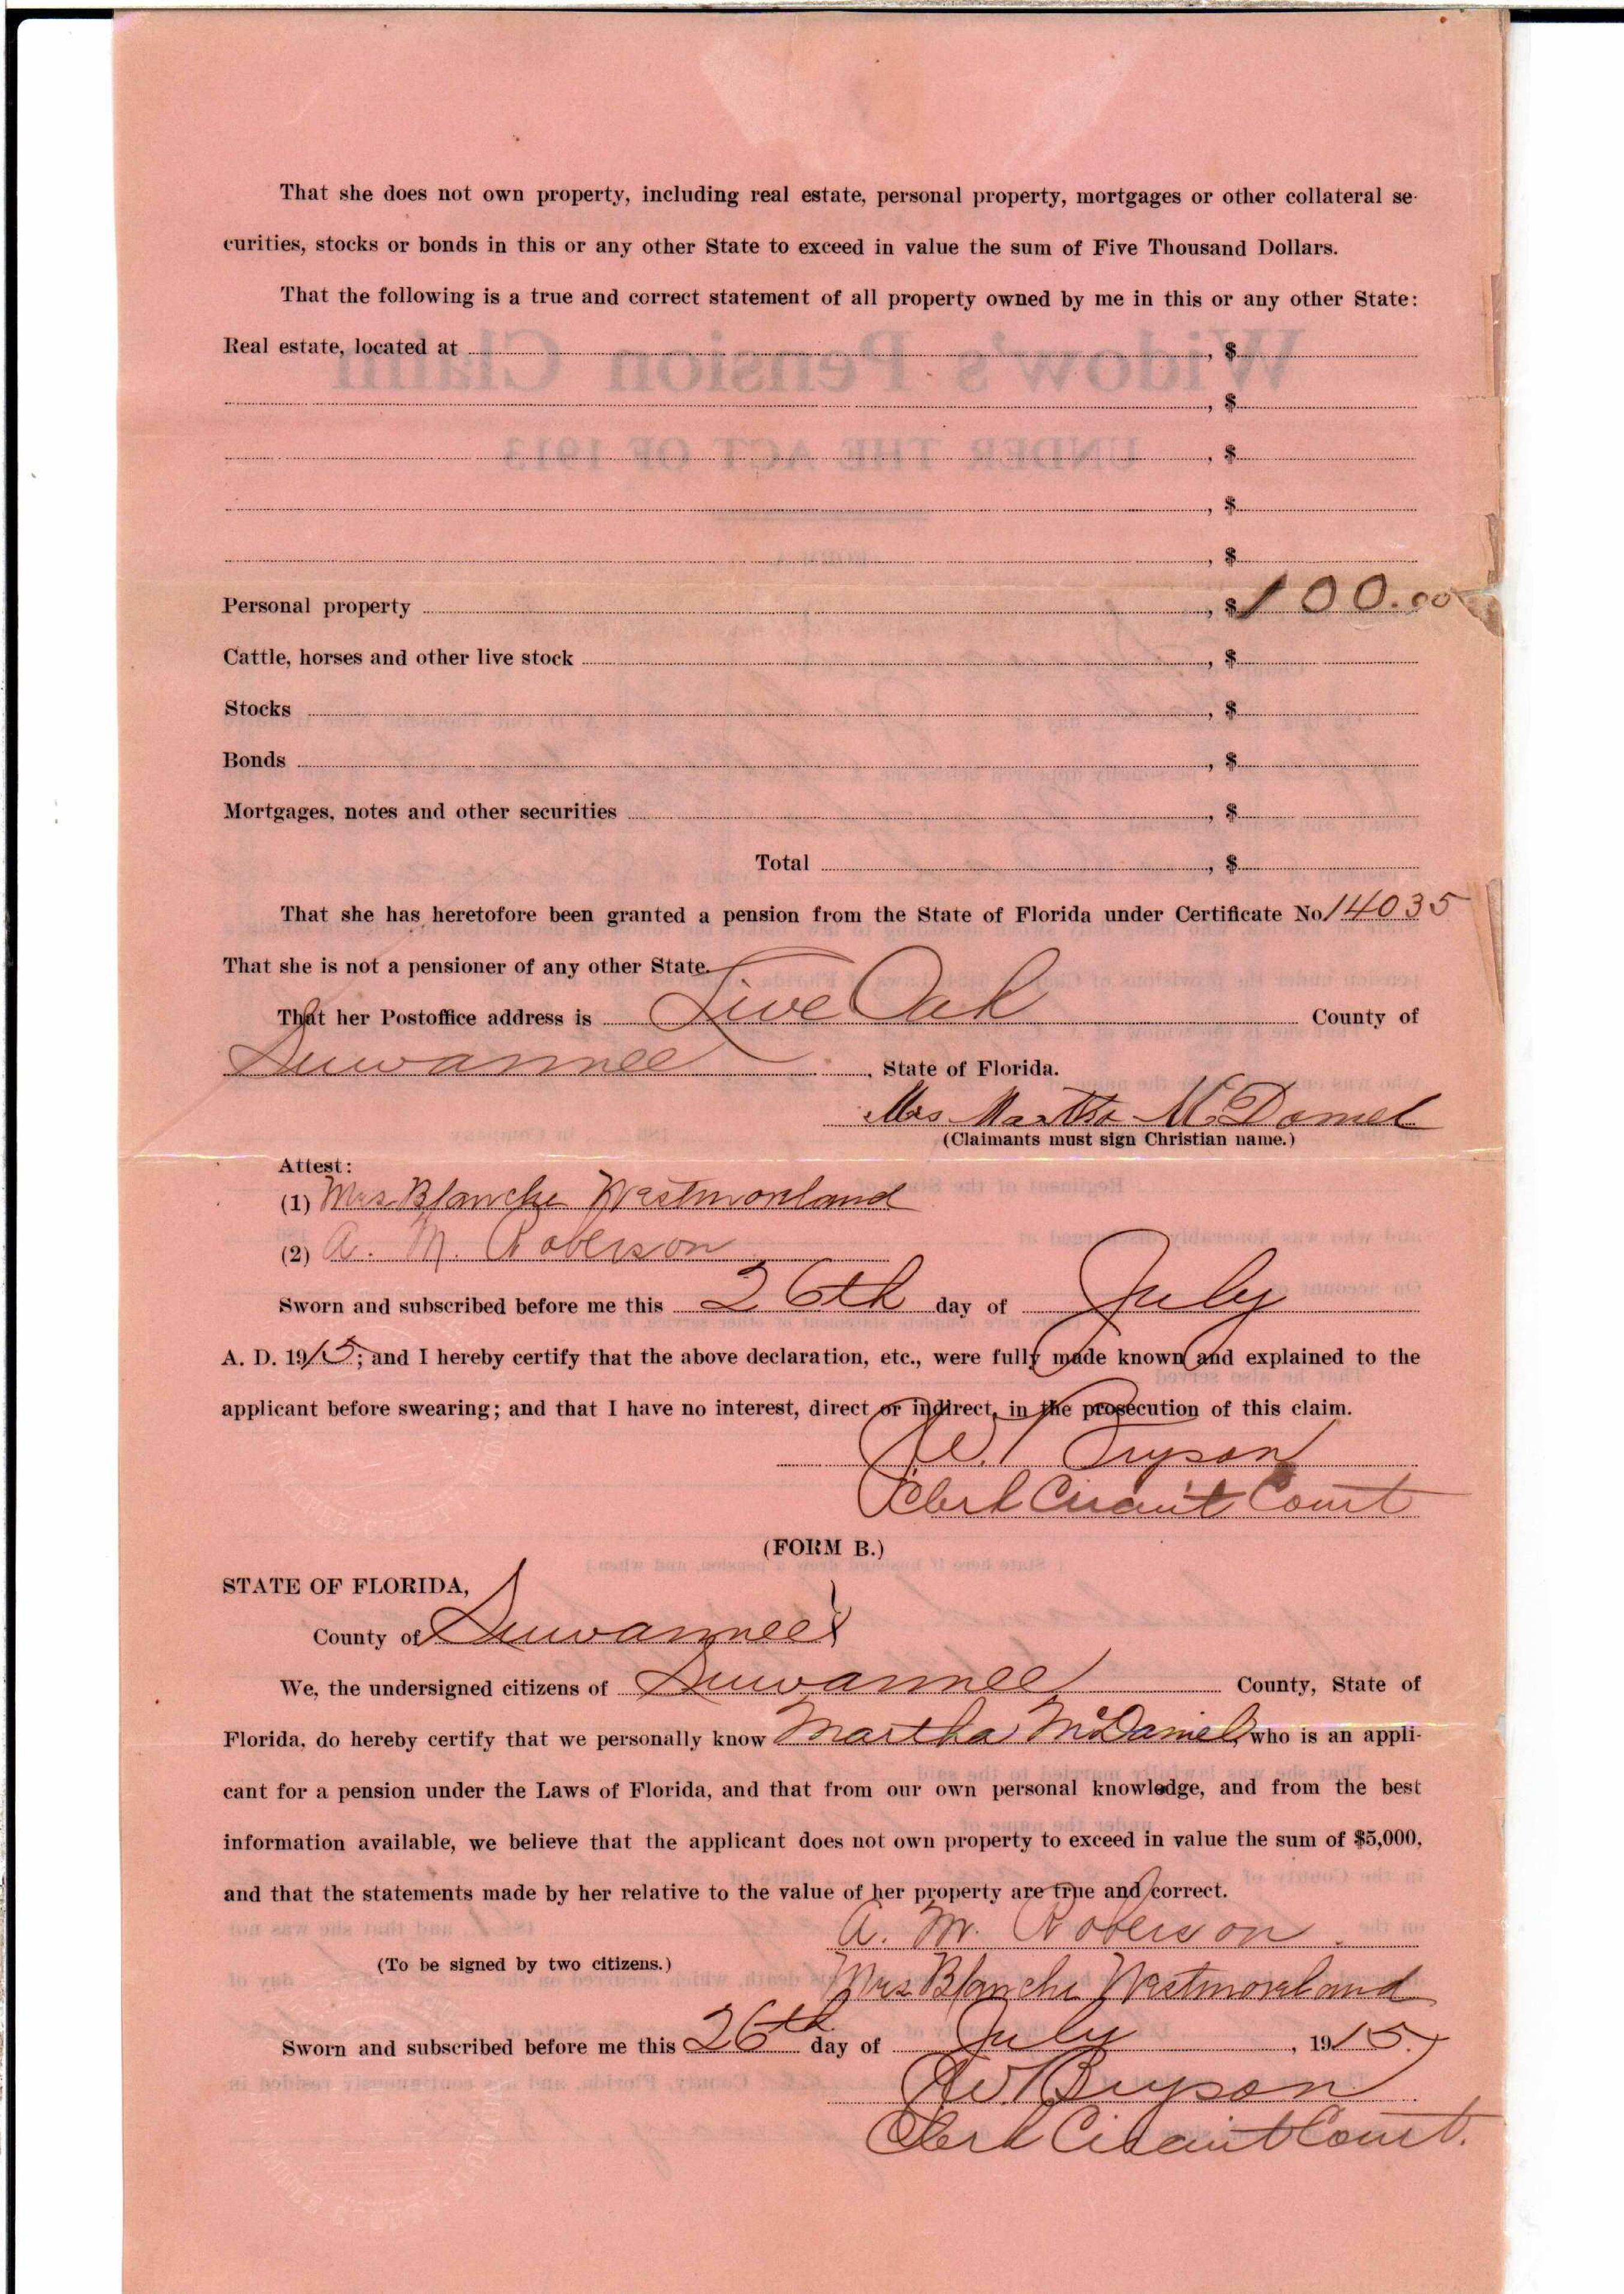 That she does not own property, including real estate, personal property, mortgages or other collateral se-
curities, stocks or bonds in this or any other State to exceed in value the sum of Five Thousand Dollars.
That the following is a true and correct statement of all property owned by me in this or any other State:
Real estate, located at , $
, $
, $
, $
, $
Personal property , $ 100.00
Cattle, horses and other live stock , $
Stocks , $
Bonds , $
Mortgages, notes and other securities , $
Total , $
That she has heretofore been granted a pension from the State of Florida under Certificate No 14035
That she is not a pensioner of any other State.
That her Postoffice address is Live Oak County of
Suwannee , State of Florida.
Mrs Martha McDaniel
(Claimants must sign Christian name.)
Attest:
(1) Mrs Blanche Westmoreland
(2) A. M. Roberson
Sworn and subscribed before me this 26th day of July
A. D. 1915; and I hereby certify that the above declaration, etc., were fully made known and explained to the
applicant before swearing; and that I have no interest, direct or indirect, in the prosecution of this claim.
Bryson
Clerk Circuit Court
(FORM B.)
STATE OF FLORIDA,
County of Suwannee
We, the undersigned citizens of Suwannee County, State of
Florida, do hereby certify that we personally know Martha McDaniel, who is an appli-
cant for a pension under the Laws of Florida, and that from our own personal knowledge, and from the best
information available, we believe that the applicant does not own property to exceed in value the sum of $5,000,
and that the statements made by her relative to the value of her property are true and correct.
A. M. Roberson
(To be signed by two citizens.)
Mrs Blanche Westmoreland
Sworn and subscribed before me this 26th day of July , 1915.
Bryson
Clerk Circuit Court.